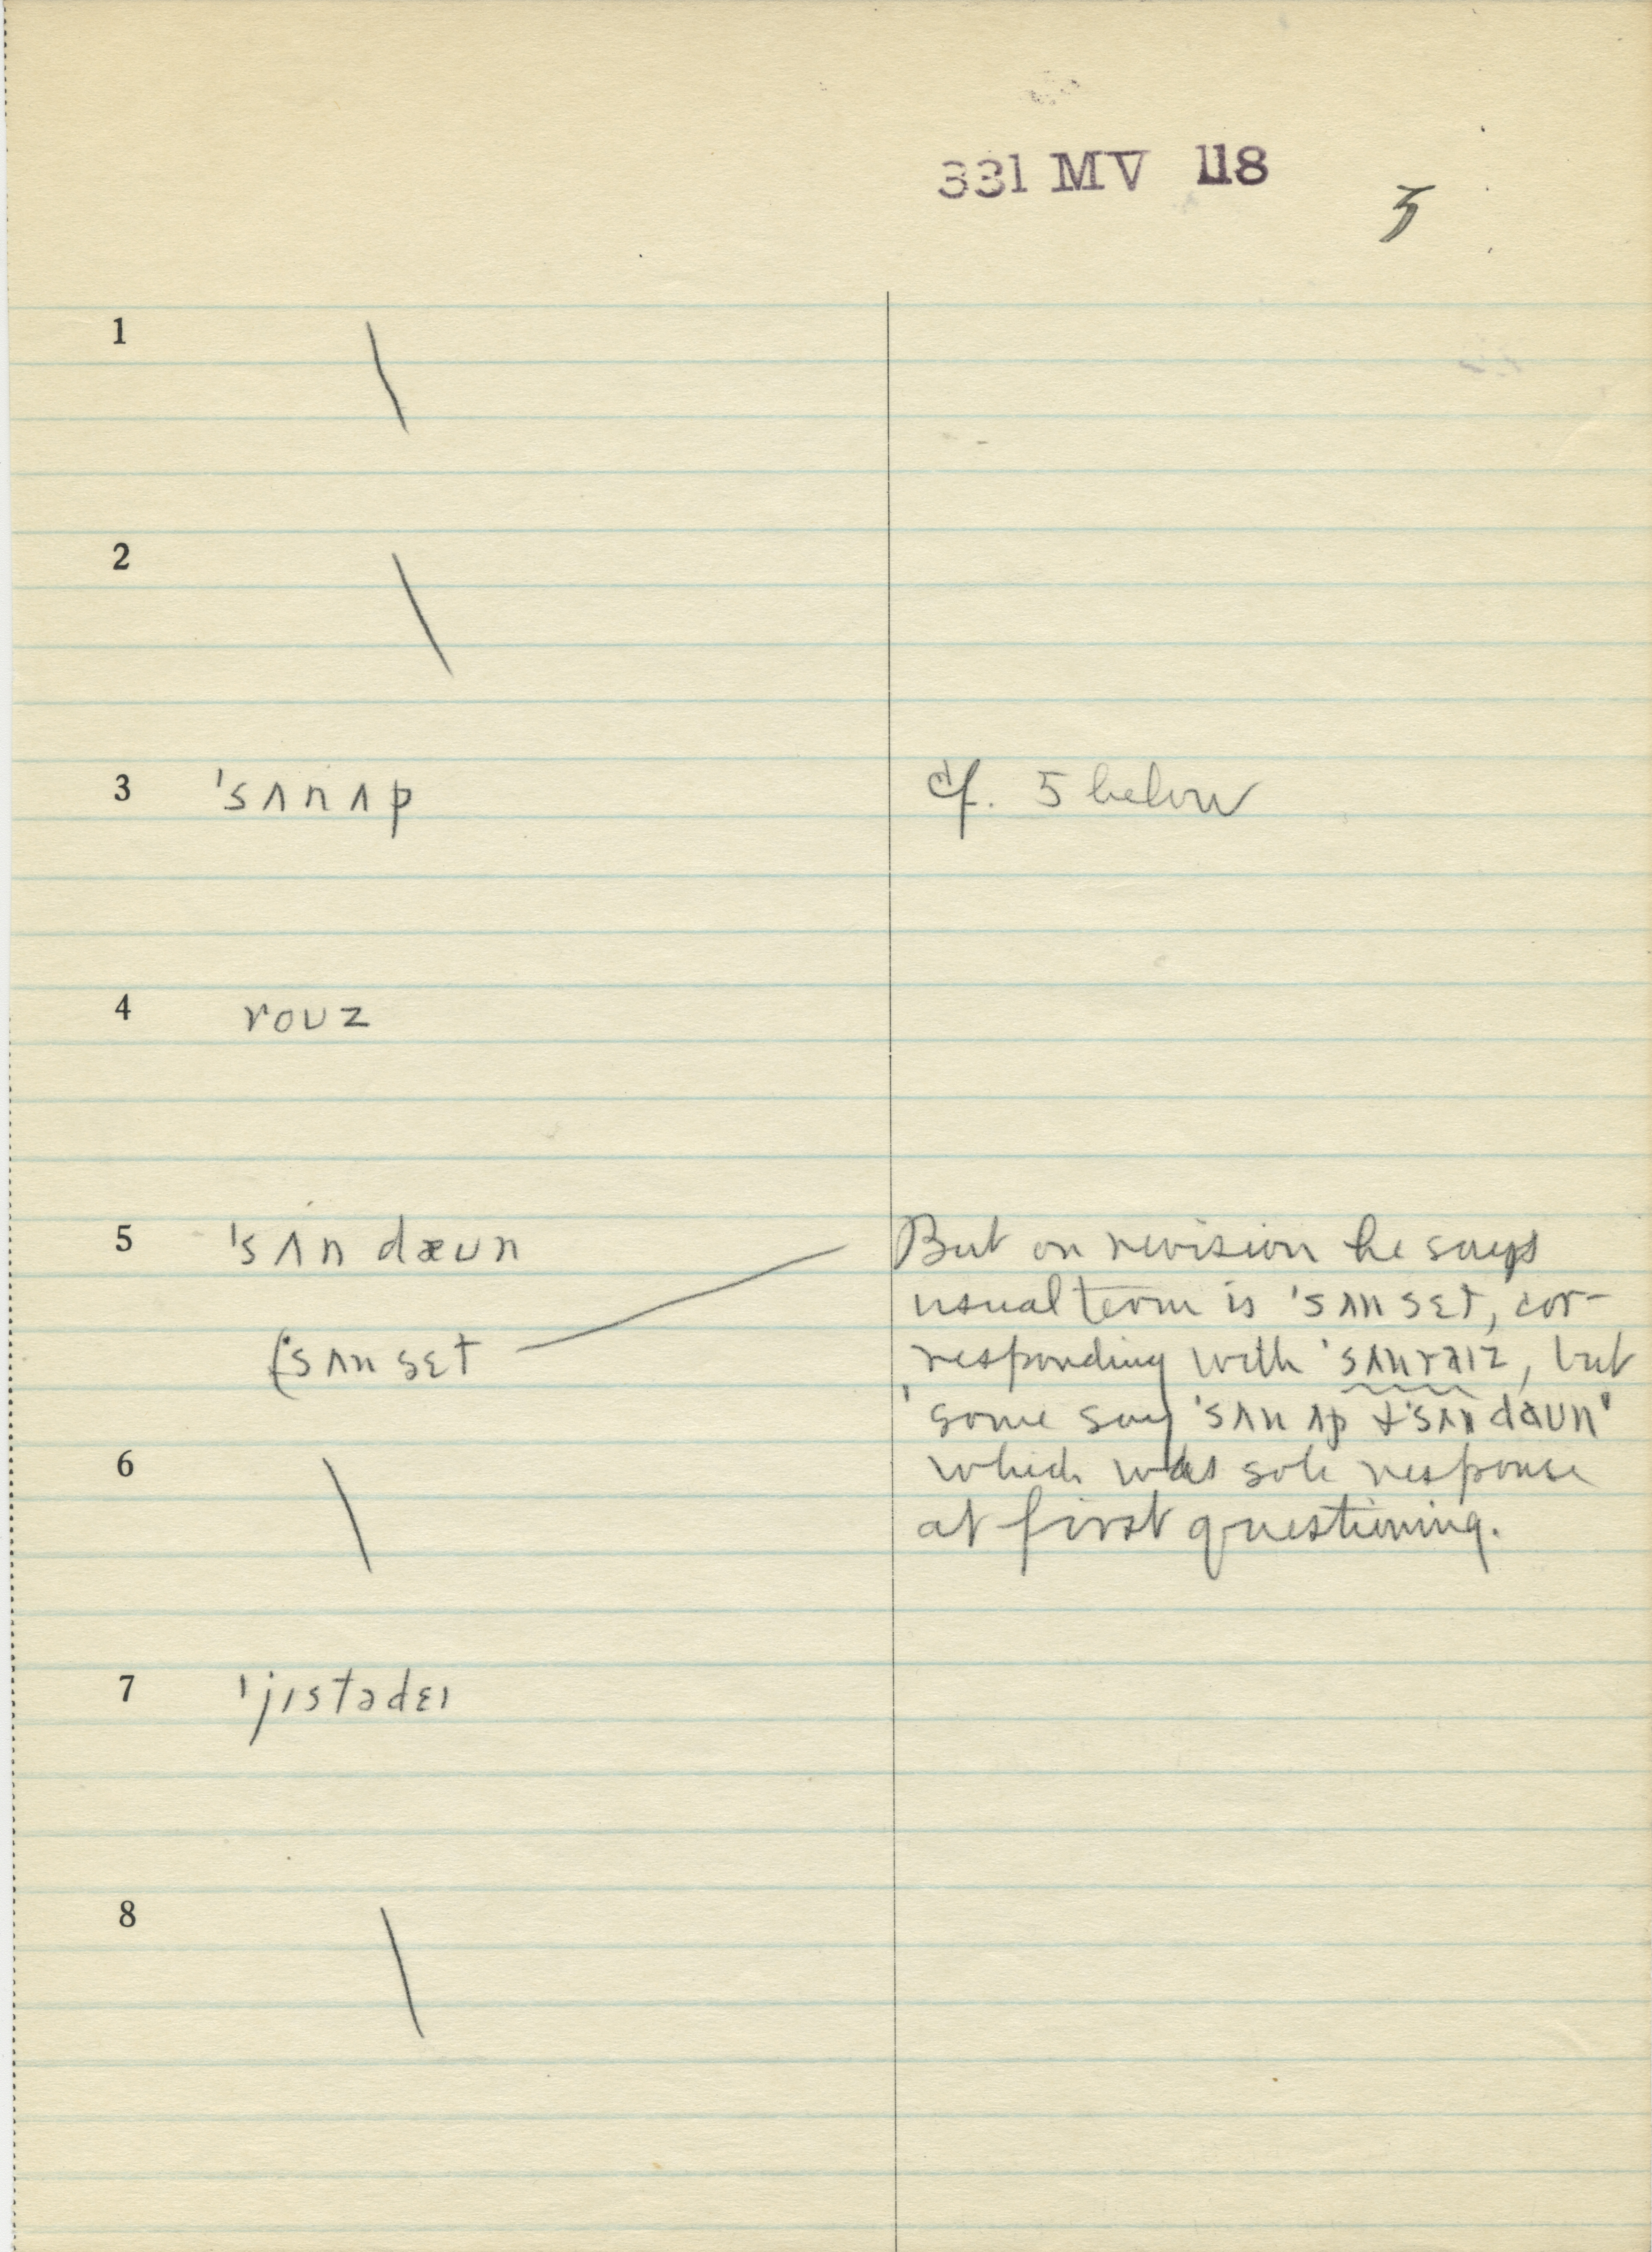 331 MV 118
5
1 \
2 \
3 ˈsʌnʌp cf. 5 below
4 roʊz
5 ˈsʌn dæʊn But on revision he says
usual term is ˈsʌn sɛt, cor-
(ˈsʌn sɛt responding with ˈsʌnraɪz, but
'some say ˈsʌn ʌp & ˈsʌn daʊn'
6 \ which was sole response
at first questioning.
7 ˈjɪstədɛɪ
8 \